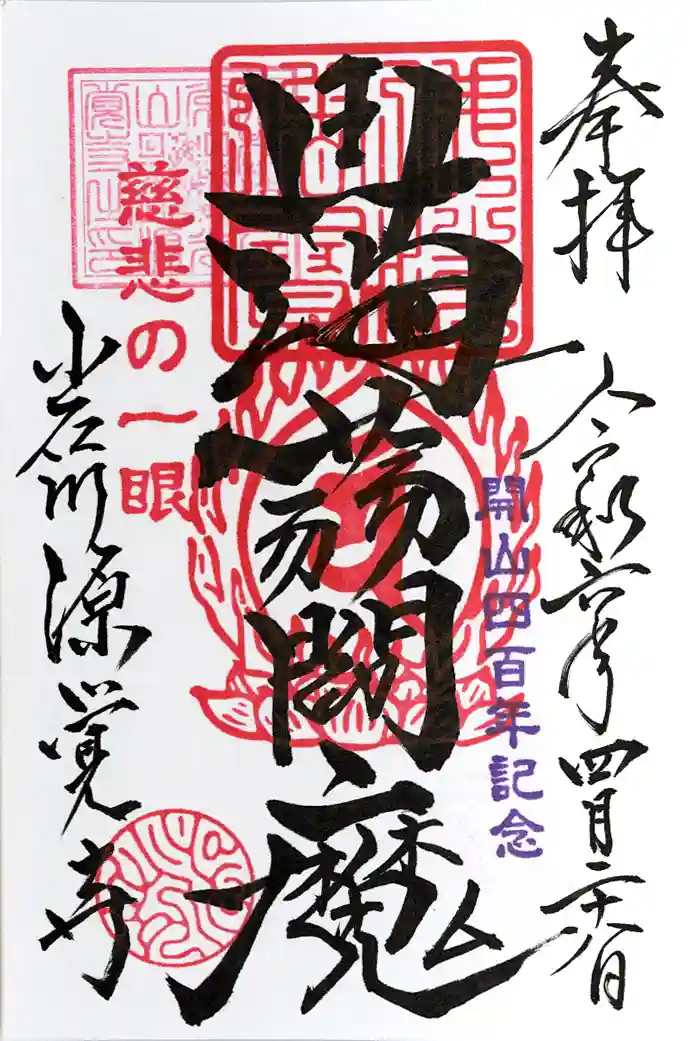 奉拝 令和六年四月二十八日
開山四百年記念
蒟蒻閻魔
慈悲の一眼
小石川源覚寺